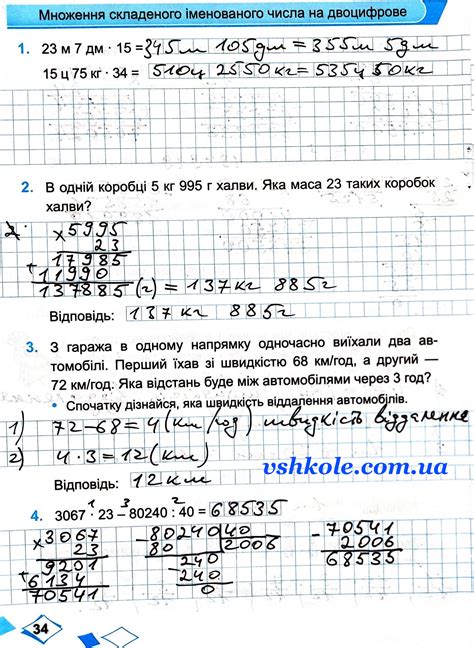 Множення складеного іменованого числа на двоцифрове
1. 23 м 7 дм · 15 = 345 м 105 дм = 355 м 5 дм
15 ц 75 кг · 34 = 510 ц 2550 кг = 535 ц 50 кг
2. В одній коробці 5 кг 995 г халви. Яка маса 23 таких коробок
халви?
2. × 5995
23
17985
+ 11990
137885 (г) = 137 кг 885 г
Відповідь: 137 кг 885 г
3. З гаража в одному напрямку одночасно виїхали два ав-
томобілі. Перший їхав зі швидкістю 68 км/год, а другий —
72 км/год. Яка відстань буде між автомобілями через 3 год?
• Спочатку дізнайся, яка швидкість віддалення автомобілів.
1) 72 – 68 = 4 (км/год) швидкість віддалення
2) 4 · 3 = 12 (км)
vshkole.com.ua
Відповідь: 12 км
1 3 2
4. 3067 · 23 – 80240 : 40 = 68535
× 3067 – 80240 | 40 – 70541
23 80 2006 2006
9201 240 68535
+ 6134 – 240
70541 0
34